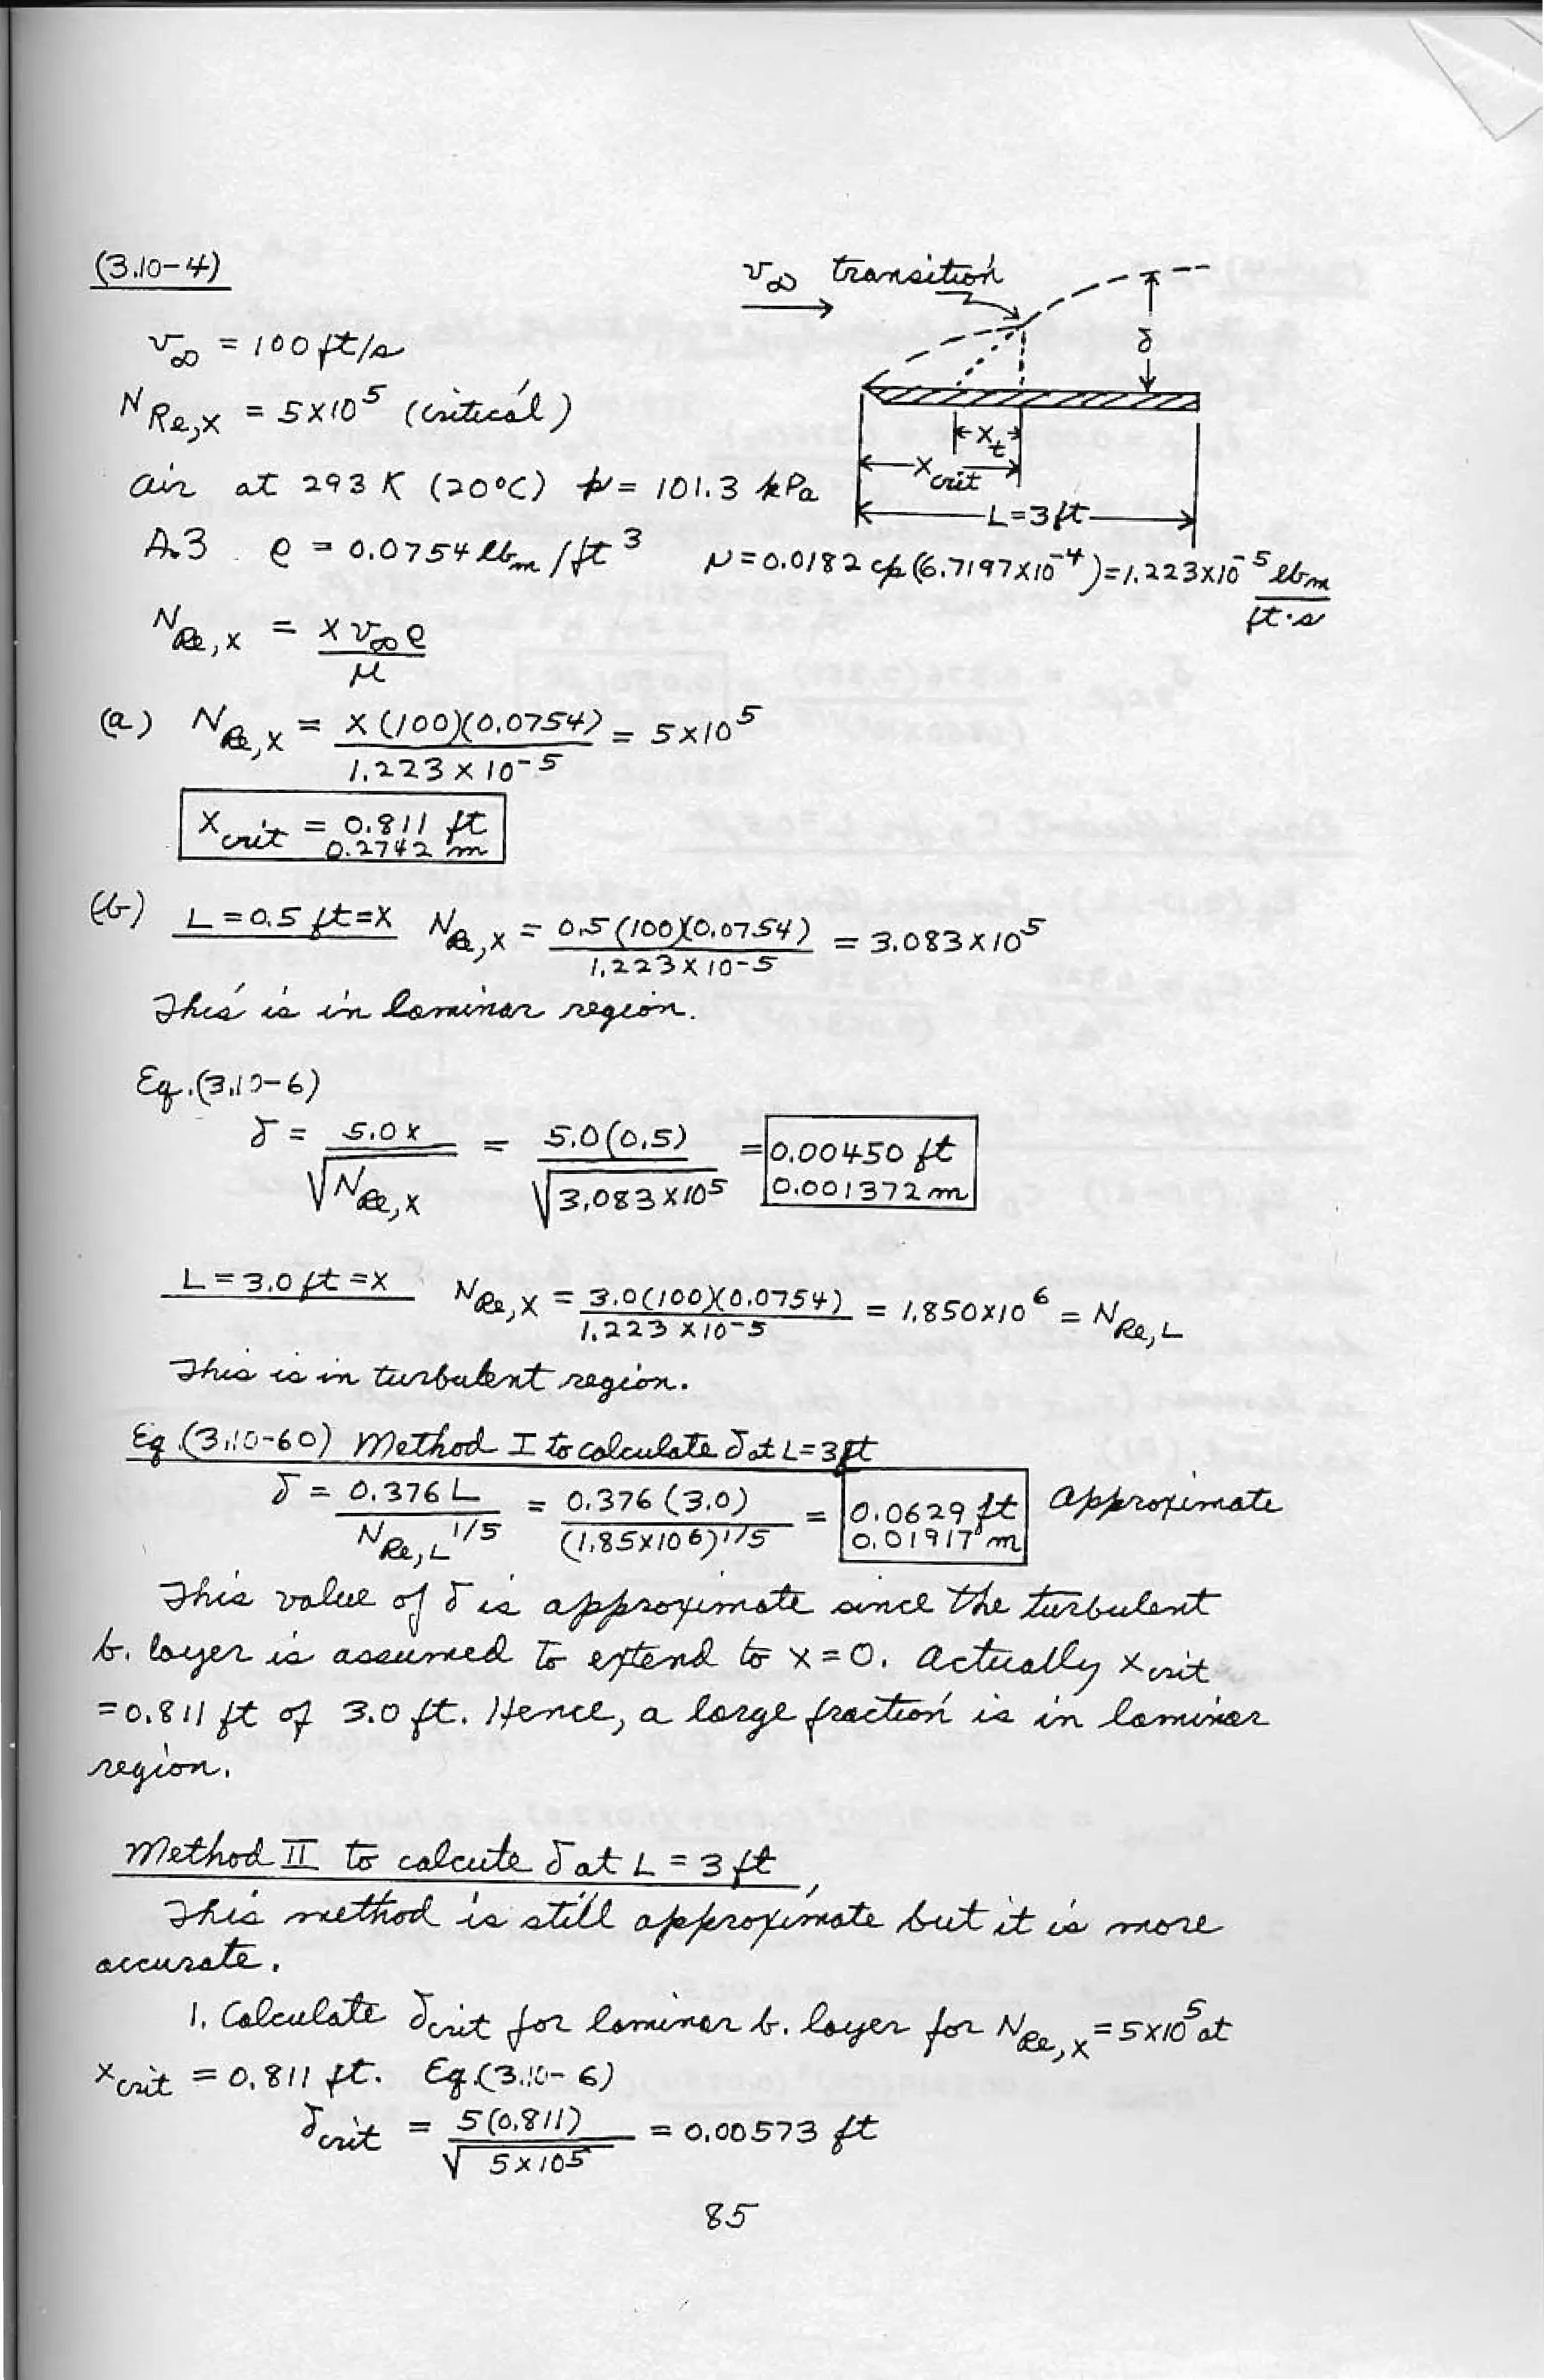 (3.10-4)
v∞ transition
δ
v∞ = 100 ft/s
N Re,x = 5x10^5 (critical)
x_t
x_crit
air at 293 K (20°C) p = 101.3 kPa
L=3ft
A.3 ρ = 0.0754 lbm/ft^3 μ=0.0182 cp(6.7197x10^-4)=1.223x10^-5 lbm/ft·s
N Re,x = x v∞ ρ / μ
(a) N Re,x = x(100)(0.0754) / 1.223 x 10^-5 = 5x10^5
x_crit = 0.811 ft
0.2742 m
(b) L = 0.5 ft=x N Re,x = 0.5(100)(0.0754) / 1.223 x 10^-5 = 3.083x10^5
This is in laminar region.
Eq.(3.10-6)
δ = 5.0x / √N Re,x = 5.0(0.5) / √3.083x10^5 = 0.00450 ft
0.001372 m
L = 3.0 ft =x N Re,x = 3.0(100)(0.0754) / 1.223 x10^-5 = 1.850x10^6 = N Re,L
This is in turbulent region.
Eq.(3.10-60) Method I to calculate δ at L=3ft
δ = 0.376 L / N Re,L^1/5 = 0.376 (3.0) / (1.85x10^6)^1/5 = 0.0629 ft approximate
0.01917 m
This value of δ is approximate since the turbulent
b. layer is assumed to extend to x=0. Actually x_crit
=0.811 ft of 3.0 ft. Hence, a large fraction is in laminar
region.
Method II to calcute δ at L = 3 ft
This method is still approximate but it is more
accurate.
1. Calculate δcrit for laminar b. layer for N Re,x =5x10^5 at
x_crit = 0.811 ft. Eq.(3.10-6)
δcrit = 5(0.811) / √5x10^5 = 0.00573 ft
85